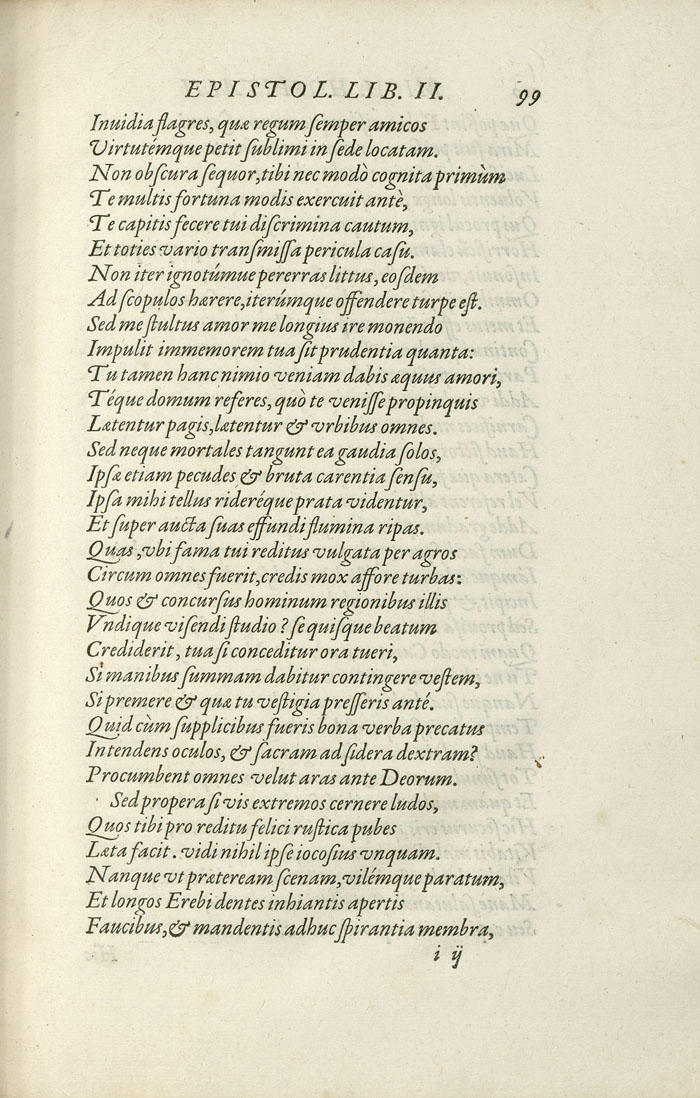 EPISTOL. LIB. II. 99
Inuidia flagres, quæ regum ſemper amicos
Virtutémque petit ſublimi in ſede locatam.
Non obſcura ſequor, tibi nec modò cognita primùm
Te multis fortuna modis exercuit antè,
Te capitis fecere tui diſcrimina cautum,
Et toties vario tranſmiſſa pericula caſu.
Non iter ignotúmue pererras littus, eoſdem
Ad ſcopulos hærere, iterúmque offendere turpe eſt.
Sed me ſtultus amor me longius ire monendo
Impulit immemorem tua ſit prudentia quanta:
Tu tamen hanc nimio veniam dabis æquus amori,
Téque domum referes, quò te veniſſe propinquis
Lætentur pagis, lætentur & vrbibus omnes.
Sed neque mortales tangunt ea gaudia ſolos,
Ipſæ etiam pecudes & bruta carentia ſenſu,
Ipſa mihi tellus rideréque prata videntur,
Et ſuper aucta ſuas effundi flumina ripas.
Quas, vbi fama tui reditus vulgata per agros
Circum omnes fuerit, credis mox affore turbas:
Quos & concurſus hominum regionibus illis
Vndique viſendi ſtudio? ſe quiſque beatum
Crediderit, tua ſi conceditur ora tueri,
Si manibus ſummam dabitur contingere veſtem,
Si premere & quæ tu veſtigia preſſeris anté.
Quid cùm ſupplicibus fueris bona verba precatus
Intendens oculos, & ſacram ad ſidera dextram?
Procumbent omnes velut aras ante Deorum.
Sed propera ſi vis extremos cernere ludos,
Quos tibi pro reditu felici ruſtica pubes
Læta facit. vidi nihil ipſe iocoſius vnquam.
Nanque vt præteream ſcenam, vilémque paratum,
Et longos Erebi dentes inhiantis apertis
Faucibus, & mandentis adhuc ſpirantia membra,
i ij